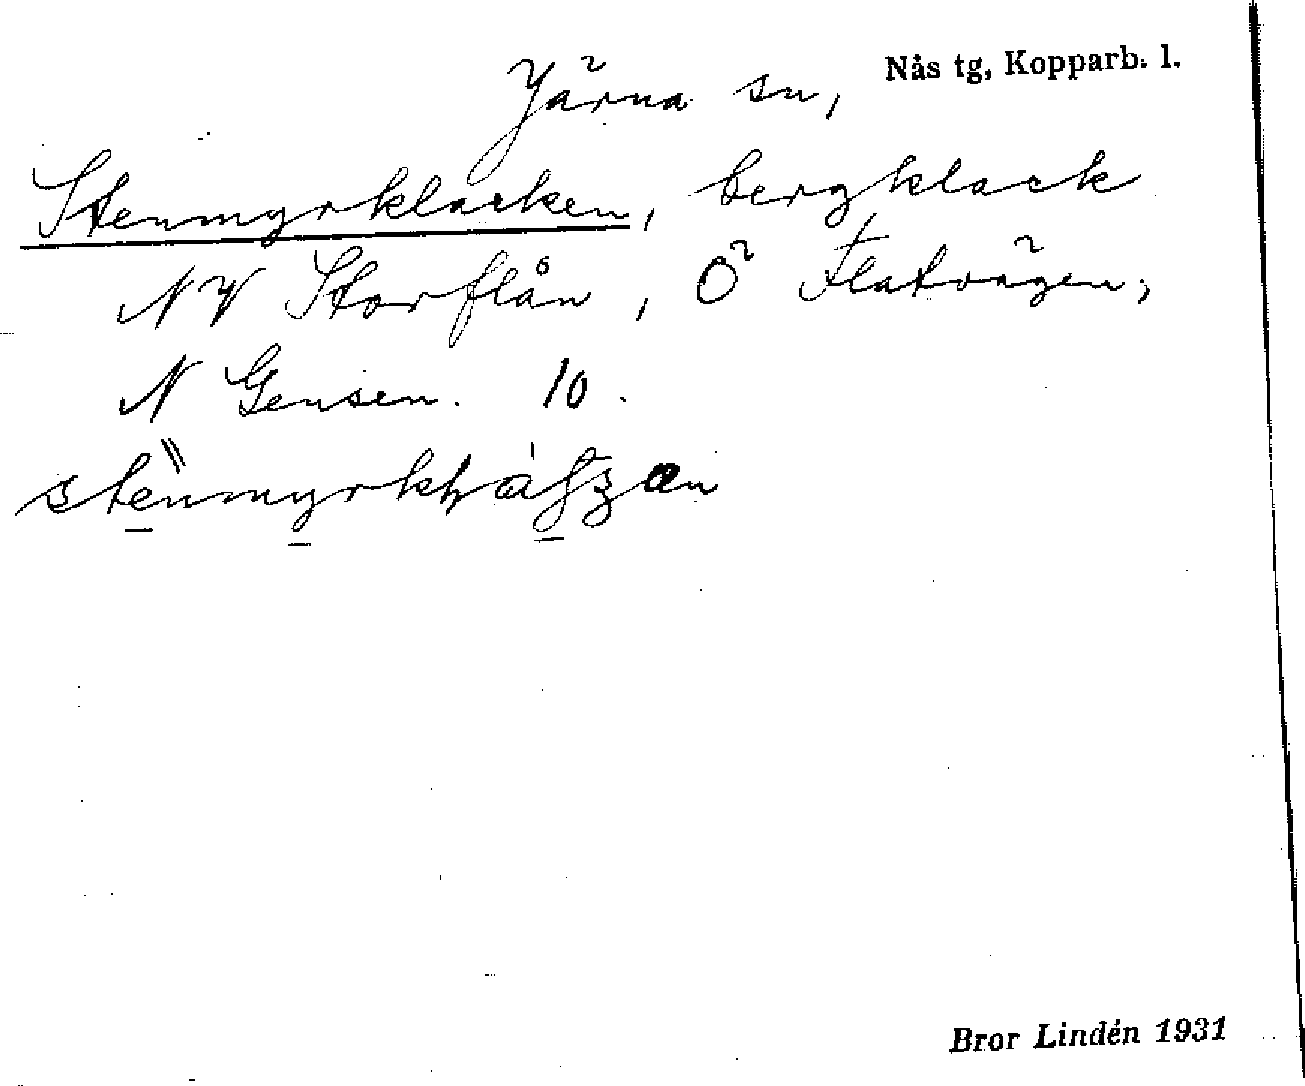 Järna sn, Nås tg, Kopparb. l.
Stenmyrklacken, bergklack
NV Storflån, Ö Flatvägen,
N Gensen. 10.
Bror Lindén 1931